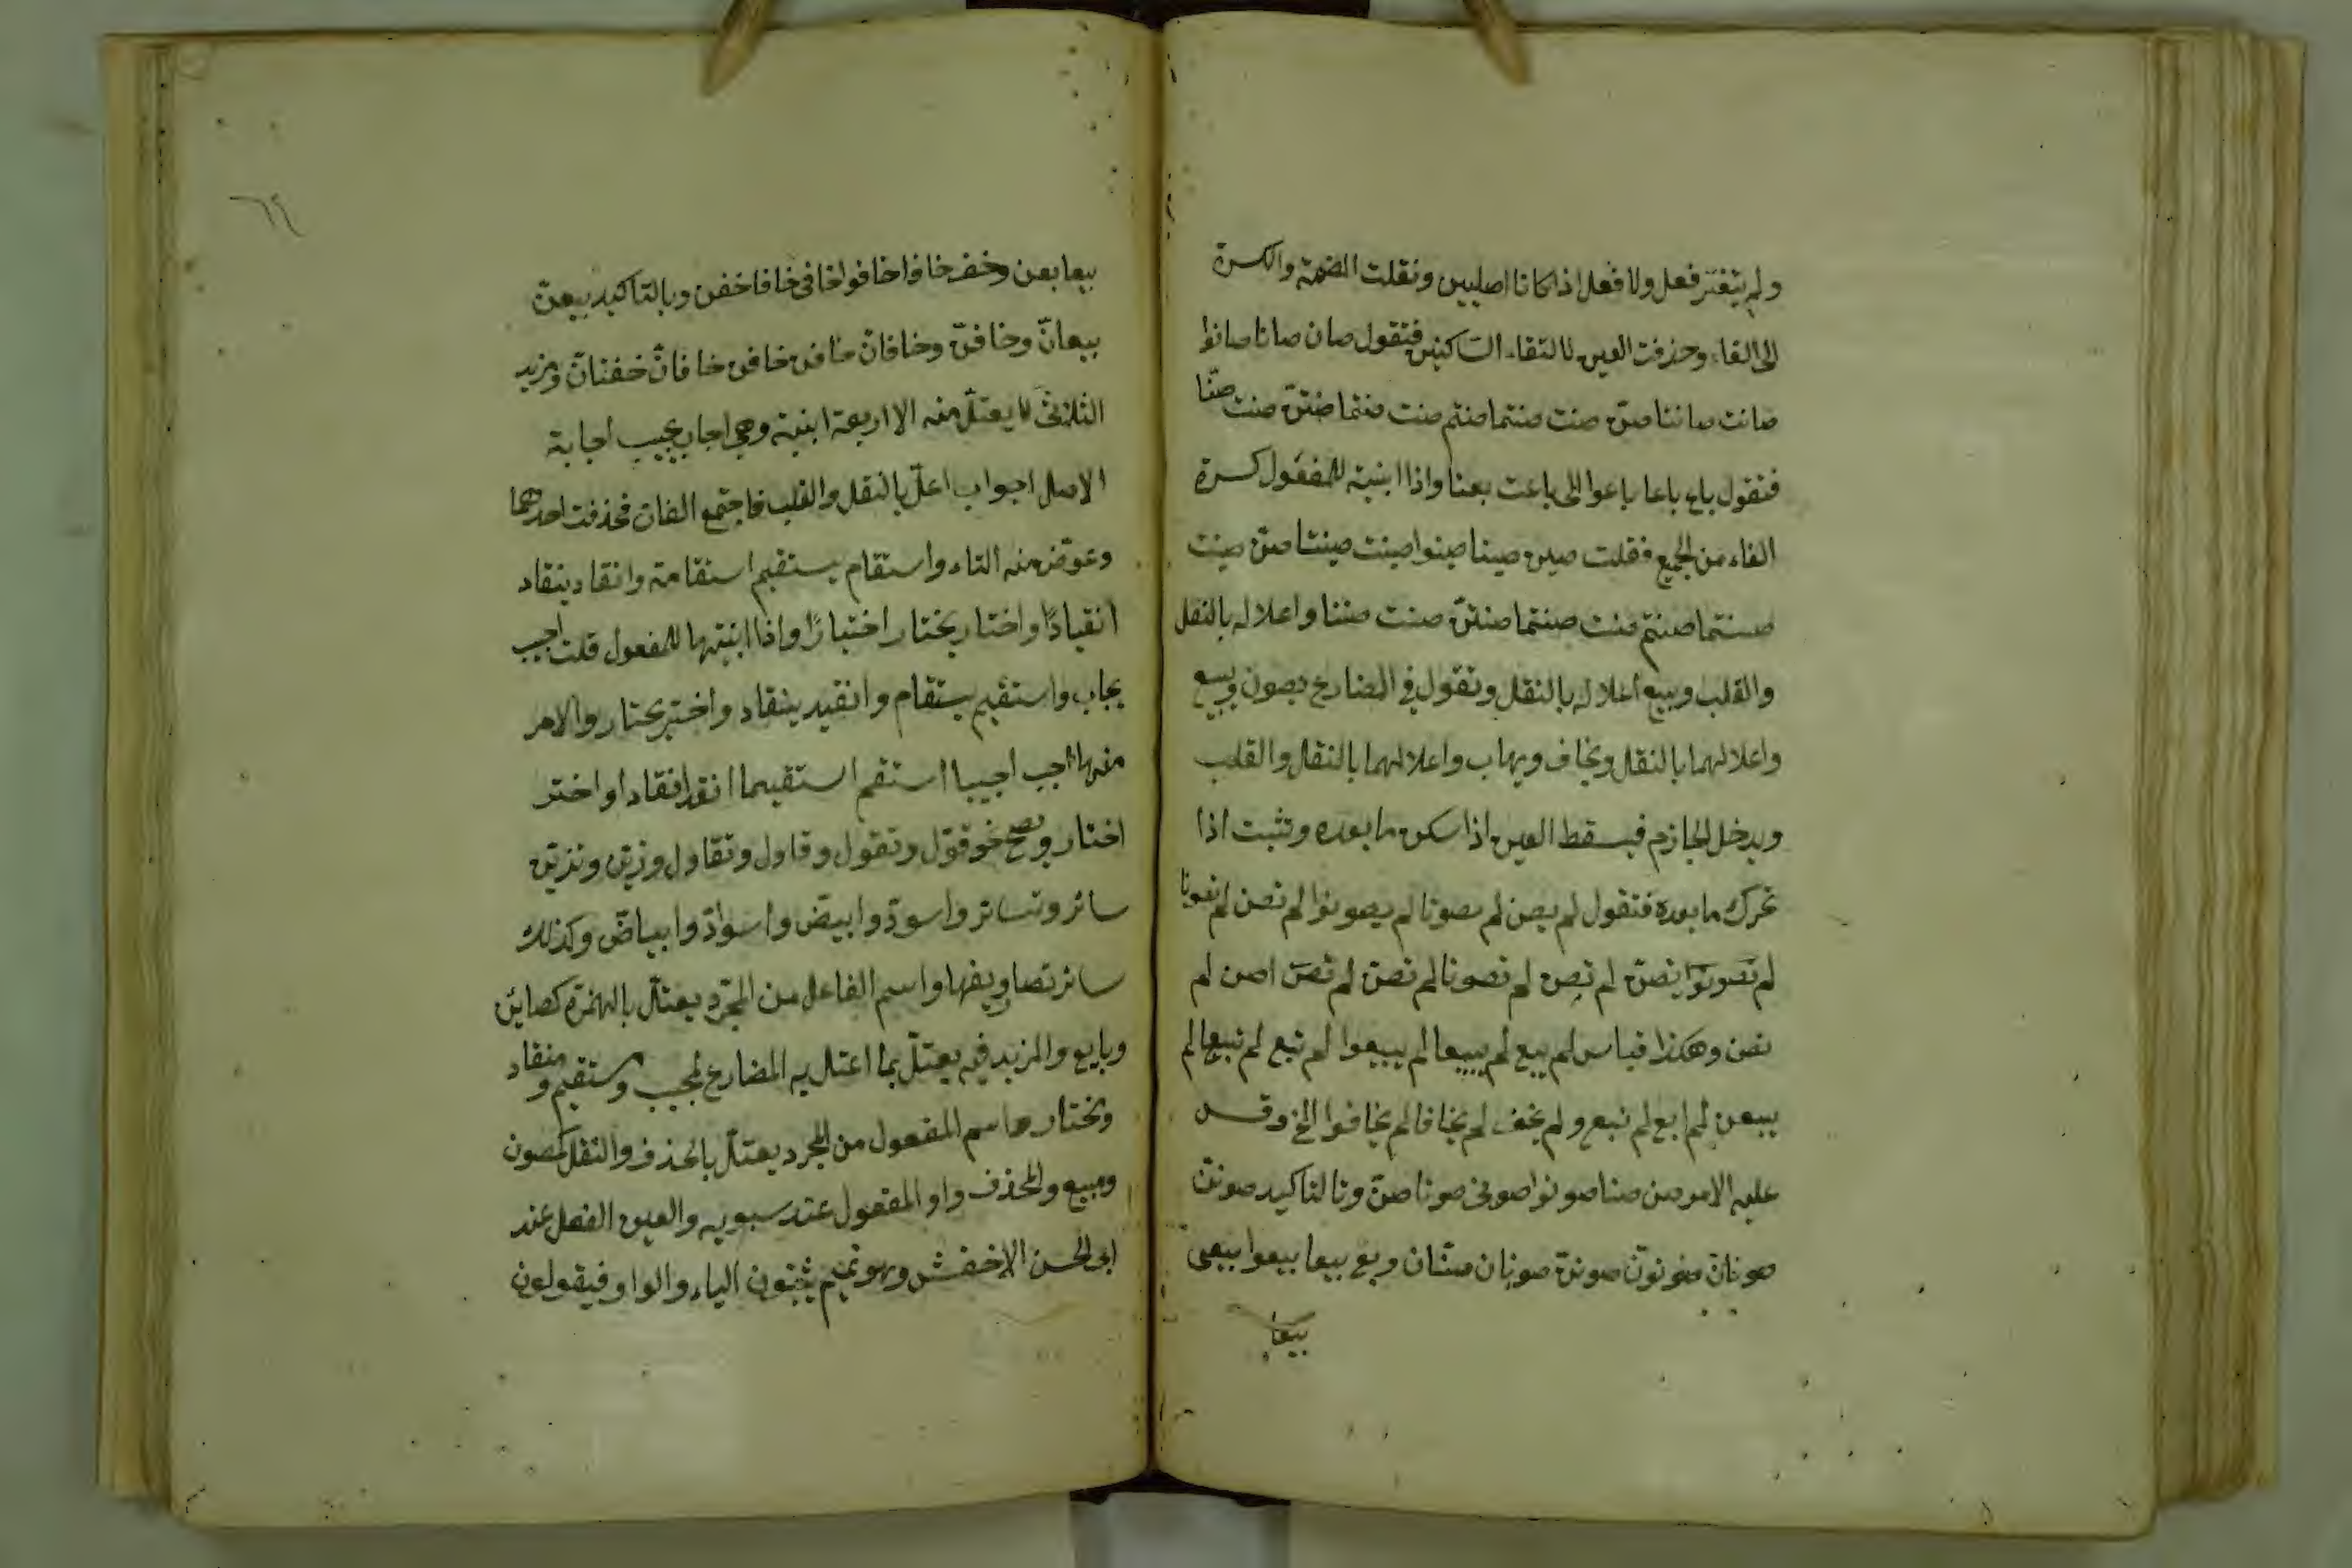 ولم يتغير فعل ولا فعل اذا كانا اصليين ونقلت الضمة والكسرة
الى الفاء وحذفت العين لالتقاء الساكنين فتقول صان صانا صانوا
صانت صانتا صنّ صنت صنتما صنتم صنت صنتما صنتنّ صنت صنّا
فتقول باع باعا باعوا الى باعت بعنا واذا ابنية للمفعول كسرة
الفاء من الجميع فقلت صين صينا صينوا صينت صينتا صنّ صينت
صنتما صنتم صنت صنتما صنتنّ صنت صننا واعلاله بالنقل
والقلب وبيع اعلاله بالنقل وتقول في المضارع يصون ويبيع
واعلالهما بالنقل ويخاف ويهاب واعلالهما بالنقل والقلب
ويدخل الجازم فيسقط العين اذا سكن ما بعده وتثبت اذا
تحرك ما بعده فتقول لم يصن لم يصونا لم يصونوا لم تصن لم تصونا
لم تصونوا يصنّ لم تصن لم تصونا لم تصن لم تصنّ اصن لم
نصن وهكذا قياس لم يبع لم يبيعا لم يبيعوا لم تبع لم تبيعا لم
يبعن لم ابع لم نبع ولم يخف لم يخافا لم يخافوا الخ وقس
عليه الامر صن صنا صونوا صونى صونا صنّ وبالتاكيد صوننّ
صونانّ صونونّ صوننّ صونان صنّان وبع بيعا بيعوا بيعى
بيعا
٦٩
بيعا بعن وخف خافا خافوا خافى خافا خفن وبالتاكيد بيعنّ
بيعانّ وخافنّ وخافانّ خافن خافن خافانّ خفنانّ ومزيد
الثلاثى لا يعتلّ منه الا اربعة ابنية وهى اجاب يجيب اجابة
الاصل اجواب اعلّ بالنقل والقلب فاجتمع الفان فحذفت احدهما
وعوّض منه التاء واستقام يستقيم استقامة وانقاد ينقاد
انقيادًا واختار يختار اختيارًا واذا ابنيتها للمفعول قلت اجيب
يجاب واستقيم يستقام وانقيد ينقاد واختير يختار والامر
منها اجب اجيبا استقم استقيما انقد انقادا واختر
اختار ويصح نحو قوّل وتقول وقاول وتقاول وزيّن وتزيّن
سائر وتسائر واسودّ وابيضّ واسوادّ وابياضّ وكذلك
سائر تصاريفها واسم الفاعل من المجرّد يعتلّ بالهمزة كصائن
وبايع والمزيد فيه يعتلّ بما اعتل به المضارع لمجيب ومستقيم ومنقاد
ومختار واسم المفعول من المجرد يعتلّ بالحذف والنقل كمصون
ومبيع والمحذف واو المفعول عند سيبويه والعين الفعل عند
ابى الحسن الاخفش وبنو تميم يثبتون الياء والواو فيقولون